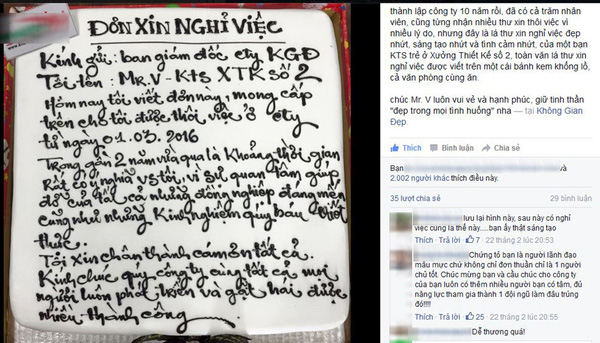 ĐƠN XIN NGHỈ VIỆC
Kính gửi: ban giám đốc cty KGĐ
Tôi tên: Mr.V - Kts XTK Số 2
Hôm nay tôi viết đơn này, mong cấp
trên cho tôi được thôi việc ở cty
từ ngày 01.03.2016
Trong gần 2 năm vừa qua là khoảng thời gian
Rất có ý nghĩa với tôi, vì sự quan tâm giúp
đỡ của tất cả những đồng nghiệp đáng mến
cũng như những kinh nghiệm quý báu thiết
thực.
Tôi xin chân thành cám ơn tất cả.
Kính chúc quý công ty cùng tất cả mọi
người luôn phát triển và gặt hái được
nhiều thành công
thành lập công ty 10 năm rồi, đã có cả trăm nhân
viên, cũng từng nhận nhiều thư xin thôi việc vì
nhiều lý do, nhưng đây là lá thư xin nghỉ việc đẹp
nhứt, sáng tạo nhứt và tình cảm nhứt, của một bạn
KTS trẻ ở Xưởng Thiết Kế số 2, toàn văn lá thư xin
nghỉ việc được viết trên một cái bánh kem khổng lồ,
cả văn phòng cùng ăn.
chúc Mr. V luôn vui vẻ và hạnh phúc, giữ tinh thần
"đẹp trong mọi tình huống" nha — tại Không Gian
Đẹp.
Thích Bình luận Chia sẻ
Bạn và
2.002 người khác thích điều này.
35 lượt chia sẻ 29 bình luận
lưu lại hình này, sau này có nghỉ
việc cung la thế này.....bạn ấy thật sáng tạo
Thích · Trả lời · 7 · 22 tháng 2 lúc 20:53
Chứng tỏ bạn là người lãnh đạo
mẫu mực chứ không chỉ đơn thuần chỉ là 1 người
chủ tốt. Chúc mừng bạn và cầu chúc cho công ty
của bạn luôn có thêm nhiều người bạn có tâm, đủ
năng lực tham gia thành 1 đội ngũ làm đâu trúng
đó!!!!
Thích · Trả lời · 25 · 22 tháng 2 lúc 22:55
Dễ thương quá!